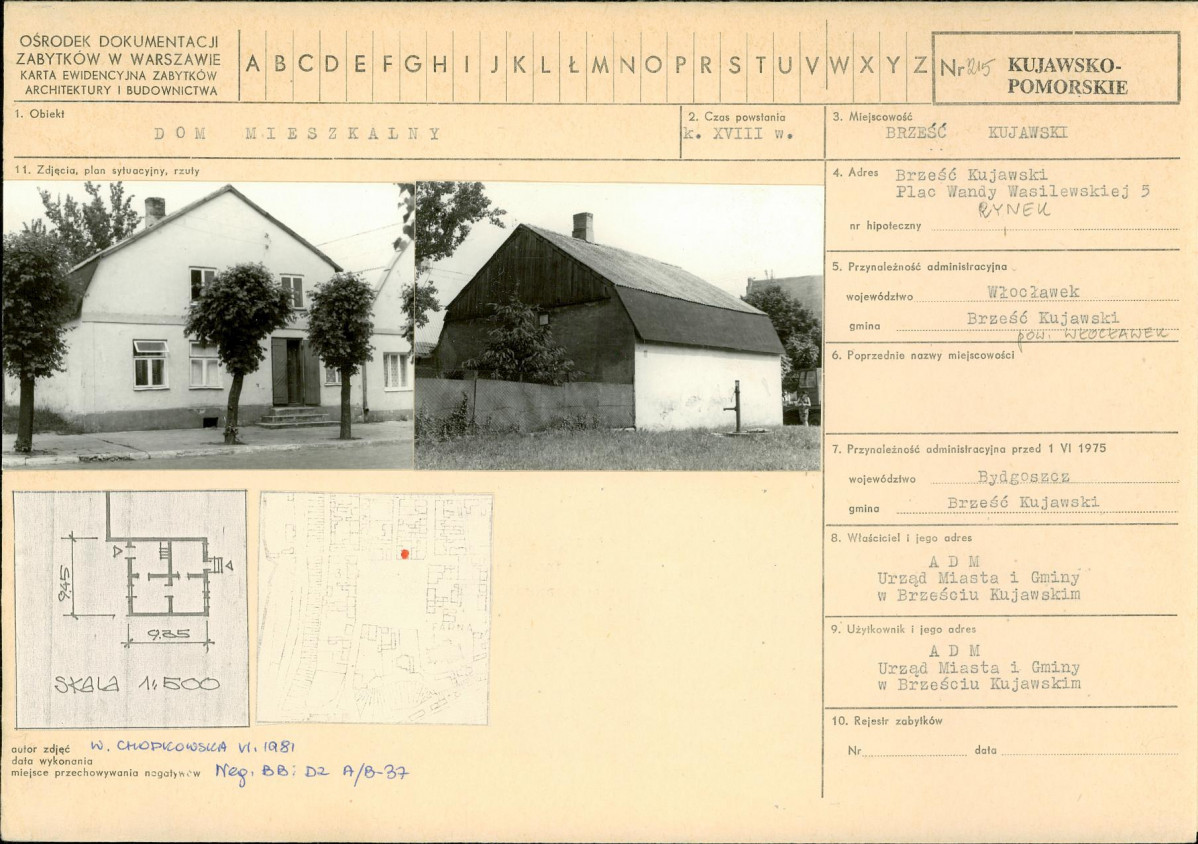 OŚRODEK DOKUMENTACJI
ZABYTKÓW W WARSZAWIE
KARTA EWIDENCYJNA ZABYTKÓW
ARCHITEKTURY I BUDOWNICTWA
A B C D E F G H I J K L Ł M N O P R S T U V W X Y Z
Nr
KUJAWSKO-
POMORSKIE
1. Obiekt
DOM MIESZKALNY
2. Czas powstania
k. XVIII w.
3. Miejscowość
BRZEŚĆ KUJAWSKI
11. Zdjęcia, plan sytuacyjny, rzuty
4. Adres Brześć Kujawski
Plac Wandy Wasilewskiej 5
RYNEK
nr hipoteczny
5. Przynależność administracyjna
województwo Włocławek
gmina Brześć Kujawski
pow. WŁOCŁAWEK
6. Poprzednie nazwy miejscowości
7. Przynależność administracyjna przed 1 VI 1975
województwo Bydgoszcz
gmina Brześć Kujawski
8. Właściciel i jego adres
A D M
Urząd Miasta i Gminy
w Brześciu Kujawskim
9. Użytkownik i jego adres
A D M
Urząd Miasta i Gminy
w Brześciu Kujawskim
10. Rejestr zabytków
Nr data
9.45
9.85
SKALA 1:500
autor zdjęć W. CHODKOWSKA VI. 1981
data wykonania
miejsce przechowywania negatywów Neg. BB: D2 A/B-37